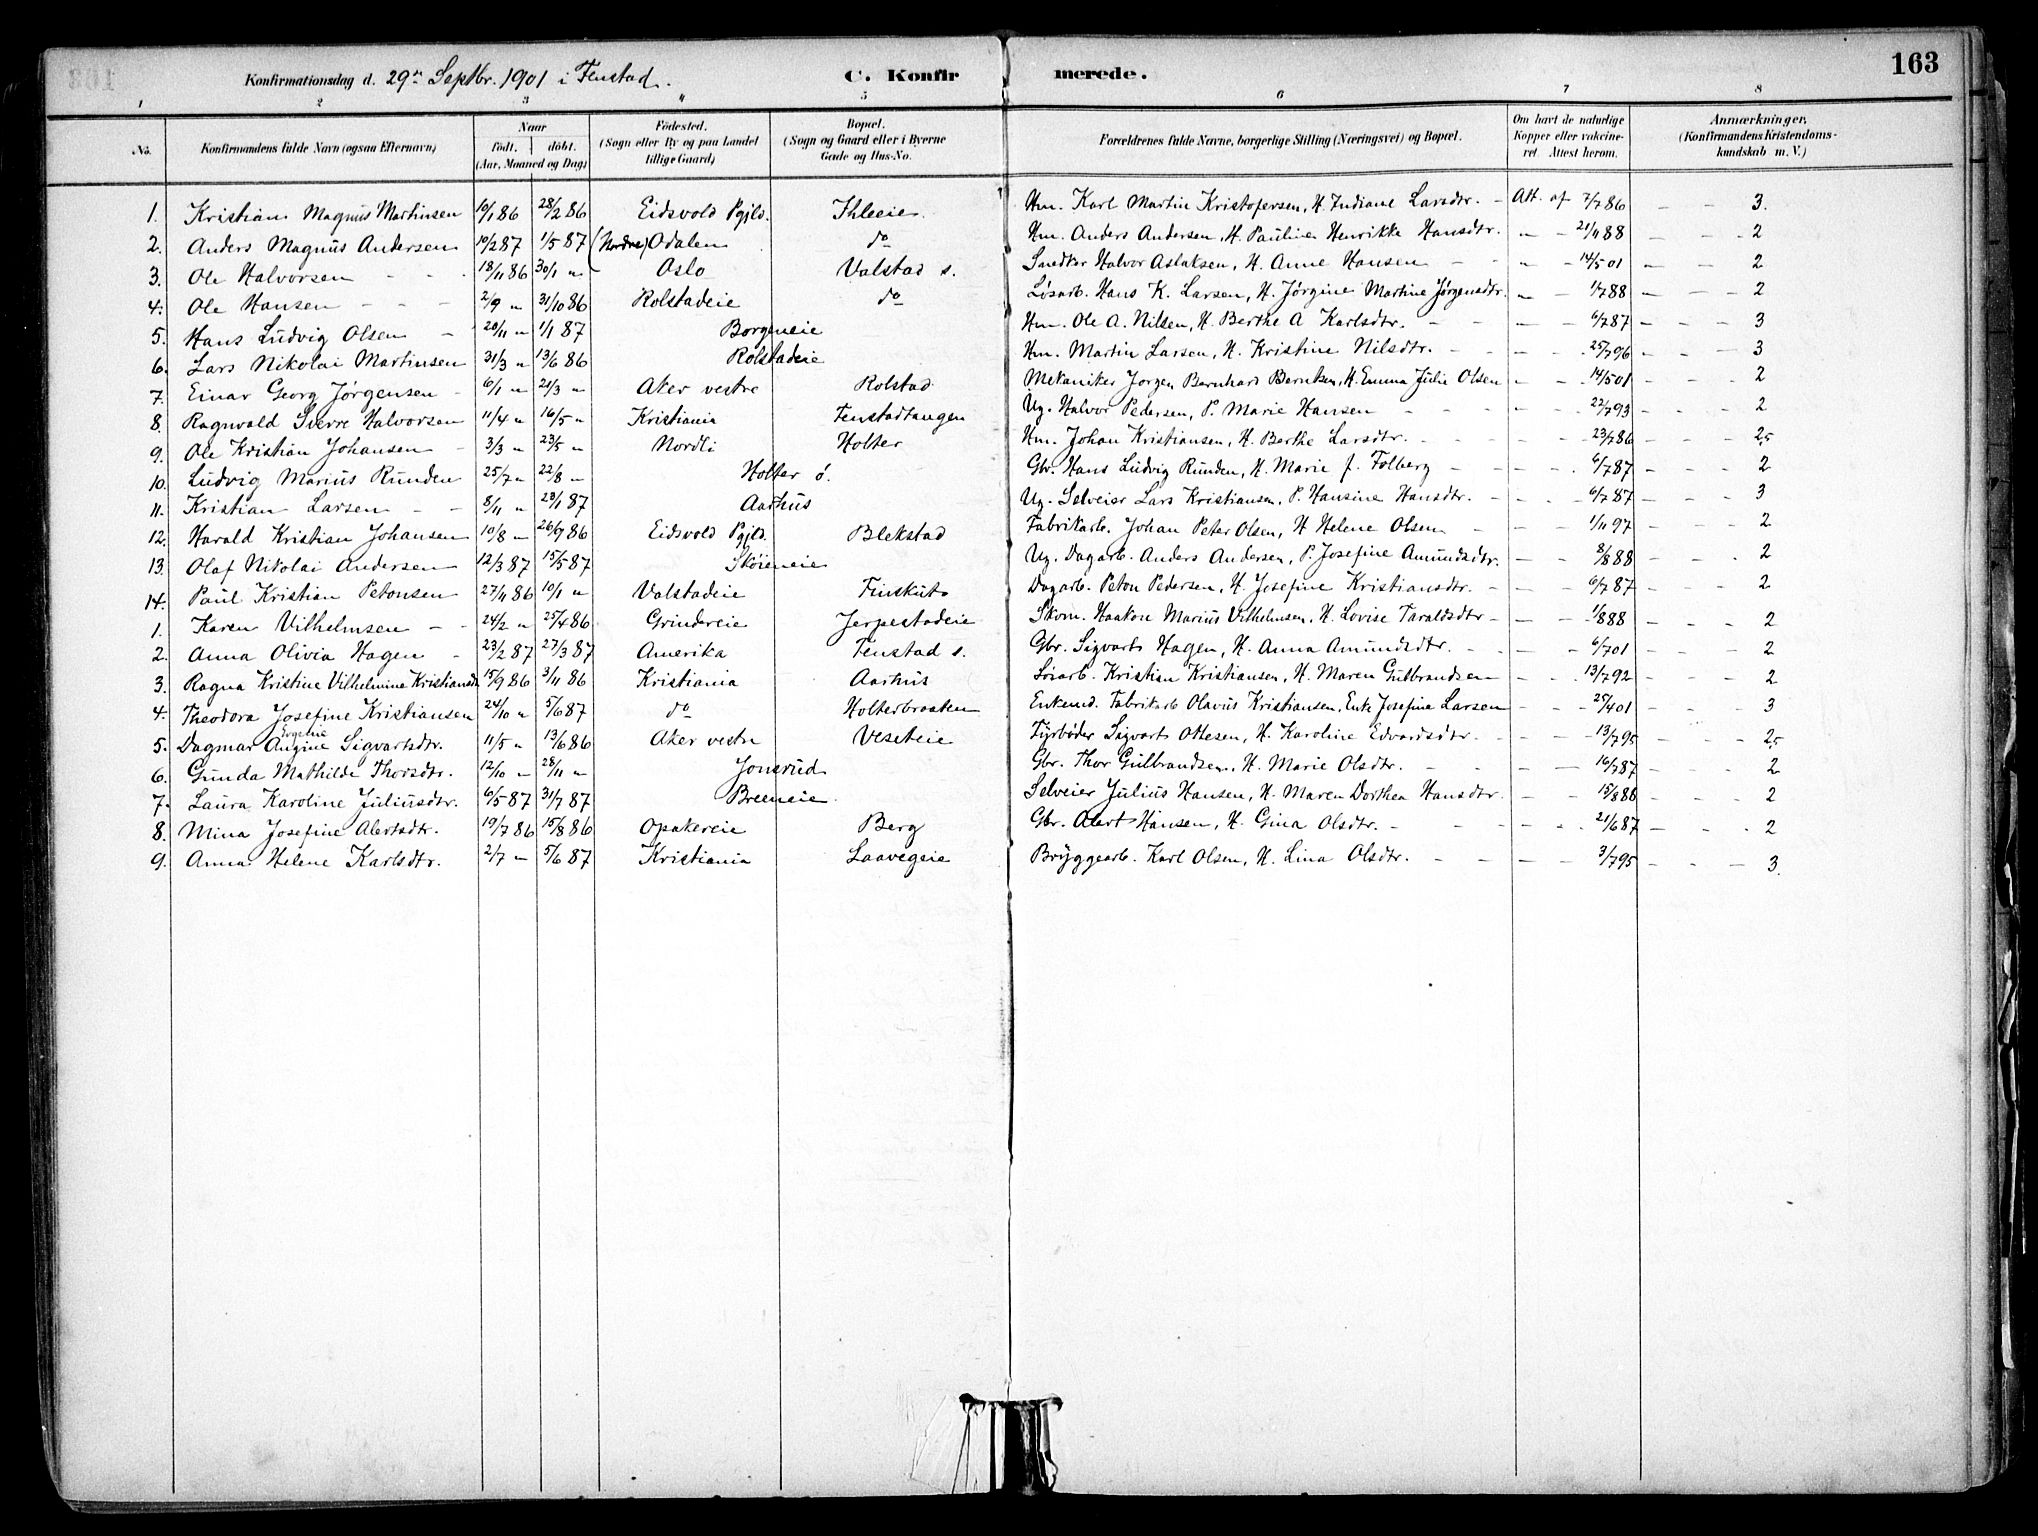 Konfirmationsdag d. 29de Septbr. 1901 i Fenstad. C. Konfirmerede. 163
1 2 3 4 5 6 7 8
No. Konfirmandens fulde Navn (ogsaa Efternavn) Naar født. døbt. (Aar, Maaned og Dag) Fødested. (Sogn eller By og paa Landet tillige Gaard) Bopæl. (Sogn og Gaard eller i Byerne Gade og Hus-No. Forældrenes fulde Navne, borgerlige Stilling (Næringsvei) og Bopæl. Om havt de naturlige Kopper eller vaccineret. Attest herom. Anmærkninger. (Konfirmandens Kristendomskundskab m. V.)
1. Kristian Magnus Martinsen 10/1 86 28/2 86 Eidsvold Pgjld. Ihleeie Hm. Karl Martin Kristofersen, H. Indiane Larsdtr. - Att. af 7/7 86 - - 3.
2. Anders Magnus Andersen 10/2 87 1/5 87 (Nordre) Odalen do Hm. Anders Andersen, H. Pauline Henrikke Hansdtr. " - 21/11 88 - - 2
3. Ole Halvorsen - - 18/11 86 30/1 " Oslo Valstad s. Snedker Halvor Aslaksen, H. Anne Hansen - - " - 14/5 01 - - 2
4. Ole Hansen - - - 2/9 " 31/10 86 Rolstadeie do Løsarb. Hans K. Larsen, H. Jørgine Martine Jørgensdtr. " - 1/7 88 - - 2
5. Hans Ludvig Olsen - 20/11 " 1/1 87 Borgeneie Hm. Ole A. Nilsen, H. Berthe A Karlsdtr. - - - - 6/7 87 - - 3
6. Lars Nikolai Martinsen 31/3 " 13/6 86 Rolstadeie Hm. Martin Larsen, H. Kristine Nilsdtr. - - - - 25/7 96 - - 3
7. Einar Georg Jørgensen - 6/1 " 21/3 " Aker vestre Rolstad Mekaniker Jørgen Bernhard Berntsen, H. Emma Julie Olsen - - 14/5 01 - - 2
8. Ragnvald Sverre Halvorsen 11/4 " 16/5 " Kristiania Fenstadtangen Ug. Halvor Pedersen, P. Marie Hansen - - - - 22/7 93 - - 2
9. Ole Kristian Johansen - 3/3 " 23/5 " Nordli Holter Hm. Johan Kristiansen, H. Berthe Larsdtr. - - - - 23/7 86 - - 2,5
10. Ludvig Marius Runden 25/7 " 22/8 " Holter ø. Gbr. Hans Ludvig Runden, H. Marie f. Folberg - - - 6/7 87 - - 2
11. Kristian Larsen - - 8/11 " 23/1 87 Aarhus Ug. Selveier Lars Kristiansen, P. Hansine Hansdtr. - - - 6/7 87 - - 3
12. Harald Kristian Johansen 10/8 " 26/9 86 Eidsvold Pgjld. Blekstad Fabrikarb. Johan Peter Olsen, H Helene Olsen - - - 1/11 97 - - 2
13. Olaf Nikolai Andersen 12/3 87 15/5 87 Skøieneie Ug. Dagarb. Anders Andersen, P. Josefine Amundsdtr. - - 8/8 88 - - 2
14. Paul Kristian Petonsen 27/11 86 10/1 " Valstadeie Finskut Dagarb. Peton Pedersen, H. Josefine Kristiansdtr. - - - 6/7 87 - - 2
1. Karen Vilhelmsen - - 24/2 " 25/4 86 Grindereie Jerpestadeie Skom. Haakon Marius Vilhelmsen, H. Lovise Taraldsdtr - - - 1/8 88 - - 2
2. Anna Olivia Hagen - 23/2 87 27/3 87 Amerika Fenstad s. Gbr. Sigvart Hagen, H. Anna Amundsdtr. - - - 6/7 01 - - 2
3. Ragna Kristine Vilhelmine Kristiansdr 15/9 86 3/11 86 Kristiania Aarhus Løsarb. Kristian Kristiansen, H. Maren Gulbrandsen - - - 13/7 92 - - 2
4. Theodora Josefine Kristiansen 24/10 " 5/6 87 do Holterbraaten Enkemd. Fabrikarb Olavus Kristiansen, Enk Josefine Larsen - - 25/4 01 - - 3
5. Dagmar Angine Sigvartsdtr. 11/5 " 13/6 86 Aker vestre Veseteie Fyrbøder Sigvart Ottesen, H. Karoline Edvardsdtr. - - - 13/7 95 - - 2,5
6. Gunda Mathilde Thorsdtr. 12/10 " 28/11 " Jonsrud Gbr. Thor Gulbrandsen, H. Marie Olsdtr. - - - - 16/7 87 - - 2
7. Laura Karoline Juliusdtr. 6/5 87 31/7 87 Breeneie Selveier Julius Hansen, H. Maren Dorthea Hansdtr. - - 15/8 88 - - 2
8. Mina Josefine Alertsdtr. 19/7 86 15/8 86 Opakereie Berg Gbr. Alert Hansen, H. Gina Olsdtr. - - - - 21/6 87 - - 2
9. Anna Helene Karlsdtr. 2/7 " 5/6 87 Kristiania Laavegeie Bryggearb. Karl Olsen, H. Lina Olsdtr. - - - - 3/7 95 - - 3.